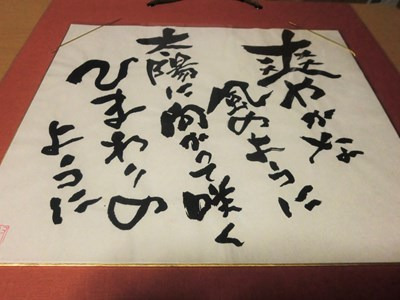 爽やかな
風のように
太陽に向かって咲く
ひまわりの
ように